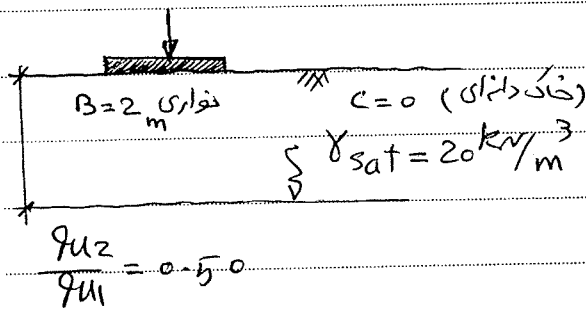 B=2m نواری
C=0 (خاک دانه‌ای)
γsat = 20 kN/m³
qu2/qu1 = 0.50